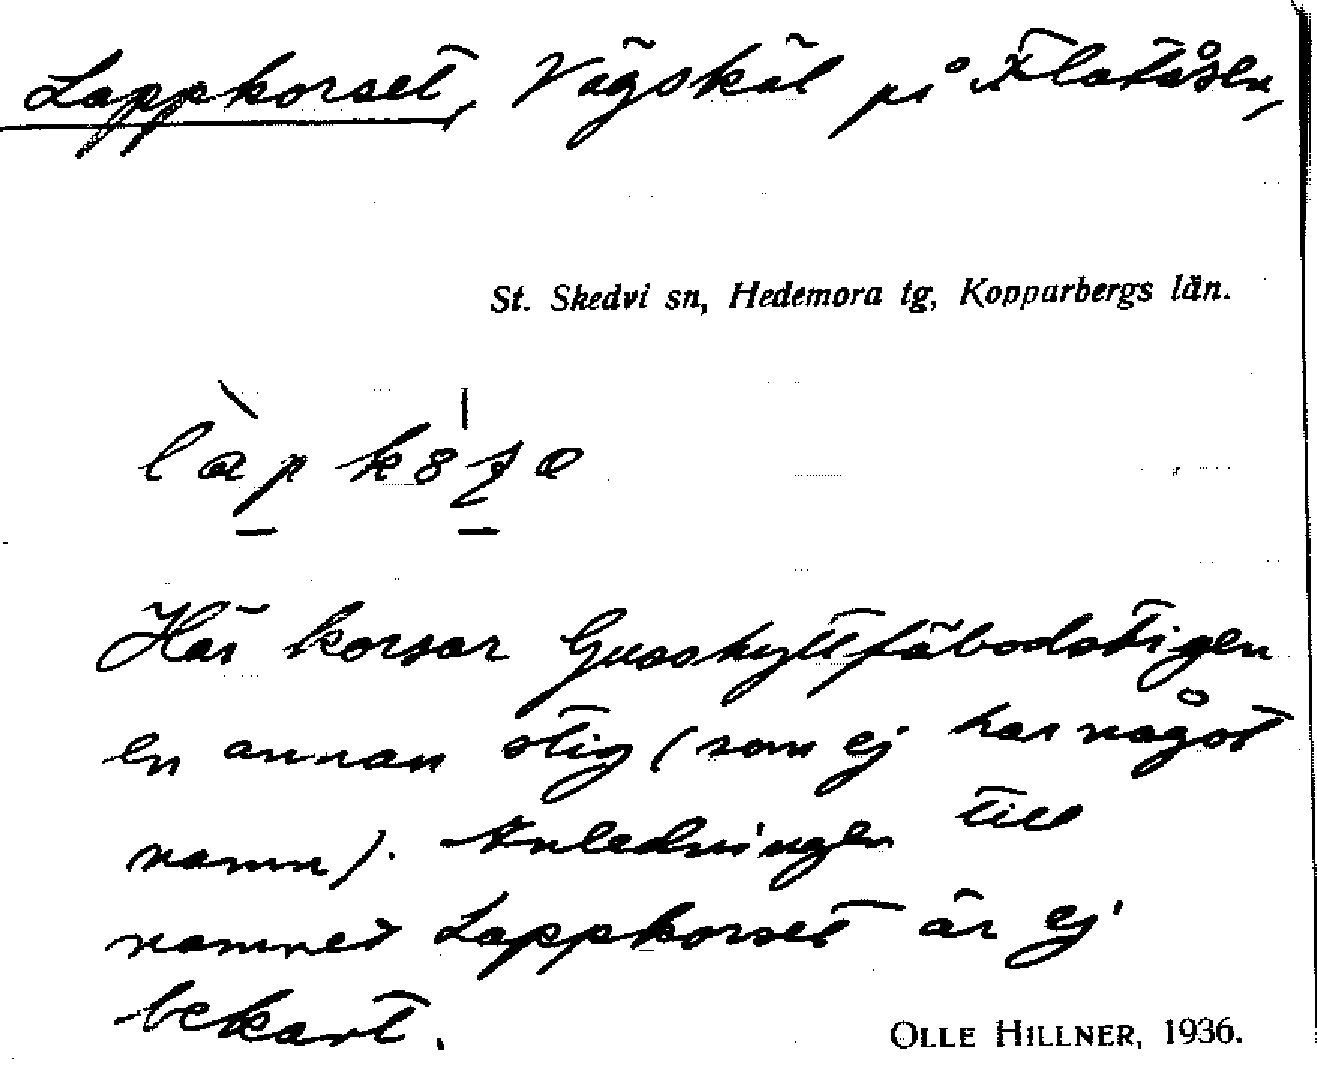 Lappkorset, Vägskäl på Flatåsen,
St. Skedvi sn, Hedemora tg, Kopparbergs län.
Här korsar Gusshyttfäbodstigen
en annan stig (som ej har något
namn). Anledningen till
namnet Lappkorset är ej
bekant.
OLLE HILLNER, 1936.